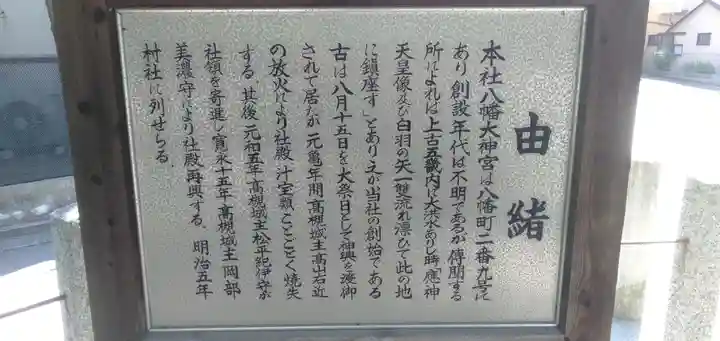 由緒
本社八幡大神宮は八幡町二番九号に
あり創設年代は不明であるが傳聞する
所によれば上古五畿内に大洪水ありし時「應神
天皇像及び白羽の矢一雙流れ漂ひて此の地
に鎮座す」とありこれが当社の創始である
古は八月十五日を大祭日として神輿を渡御
されて居たが元亀年間高槻城主高山右近
の放火により社殿、汁宝類ことごとく焼失
する。其後元和五年高槻城主松平紀伊守が
社領を寄進し寛永十五年高槻城主岡部
美濃守により社殿再興する。明治五年
村社に列せらる